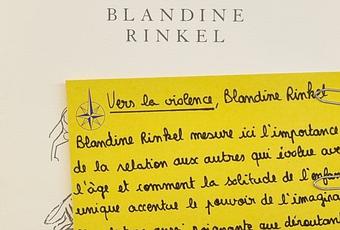 BLANDINE
RINKEL
Vers la violence, Blandine Rinkel
Blandine Rinkel mesure ici l'importance
de la relation aux autres qui évolue
l'âge et comment la solitude de
unique accentue le pouvoir de
aussi poignante que